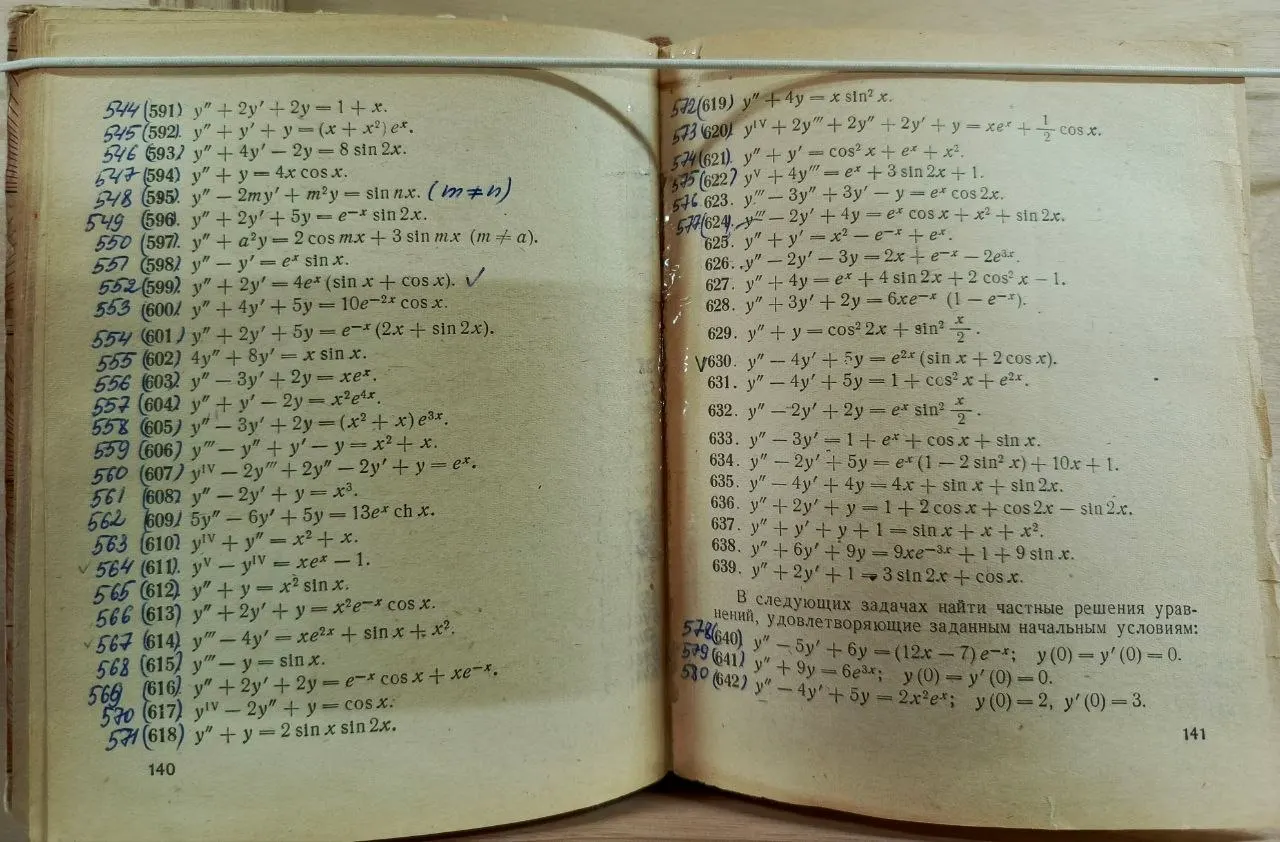 544 (591) y″ + 2y′ + 2y = 1 + x.
545 (592). y″ + y′ + y = (x + x²) eˣ.
546 (593) y″ + 4y′ − 2y = 8 sin 2x.
547 (594) y″ + y = 4x cos x.
548 (595). y″ − 2my′ + m²y = sin nx. (m ≠ n)
549 (596). y″ + 2y′ + 5y = e⁻ˣ sin 2x.
550 (597). y″ + a²y = 2 cos mx + 3 sin mx (m ≠ a).
551 (598) y″ − y′ = eˣ sin x.
552 (599) y″ + 2y′ = 4eˣ (sin x + cos x). ✓
553 (600) y″ + 4y′ + 5y = 10e⁻²ˣ cos x.
554 (601) y″ + 2y′ + 5y = e⁻ˣ (2x + sin 2x).
555 (602) 4y″ + 8y′ = x sin x.
556 (603) y″ − 3y′ + 2y = xeˣ.
557 (604) y″ + y′ − 2y = x²e⁴ˣ.
558 (605) y″ − 3y′ + 2y = (x² + x) e³ˣ.
559 (606) y‴ − y″ + y′ − y = x² + x.
560 (607) yᴵⱽ − 2y‴ + 2y″ − 2y′ + y = eˣ.
561 (608) y″ − 2y′ + y = x³.
562 (609) 5y″ − 6y′ + 5y = 13eˣ ch x.
563 (610) yᴵⱽ + y″ = x² + x.
✓ 564 (611) yⱽ − yᴵⱽ = xeˣ − 1.
565 (612) y″ + y = x² sin x.
566 (613) y″ + 2y′ + y = x²e⁻ˣ cos x.
✓ 567 (614) y‴ − 4y′ = xe²ˣ + sin x + x².
568 (615) y‴ − y = sin x.
569 (616) y″ + 2y′ + 2y = e⁻ˣ cos x + xe⁻ˣ.
570 (617) yᴵⱽ − 2y″ + y = cos x.
571 (618) y″ + y = 2 sin x sin 2x.
140
572 (619) y″ + 4y = x sin² x.
573 (620) yᴵⱽ + 2y‴ + 2y″ + 2y′ + y = xeˣ + 1/2 cos x.
574 (621). y″ + y′ = cos² x + eˣ + x².
575 (622) yⱽ + 4y‴ = eˣ + 3 sin 2x + 1.
576 623. y‴ − 3y″ + 3y′ − y = eˣ cos 2x.
577 (624). y‴ − 2y′ + 4y = eˣ cos x + x² + sin 2x.
625. y″ + y′ = x² − e⁻ˣ + eˣ.
626. y″ − 2y′ − 3y = 2x + e⁻ˣ − 2e³ˣ.
627. y″ + 4y = eˣ + 4 sin 2x + 2 cos² x − 1.
628. y″ + 3y′ + 2y = 6xe⁻ˣ (1 − e⁻ˣ).
629. y″ + y = cos² 2x + sin² x/2.
✓ 630. y″ − 4y′ + 5y = e²ˣ (sin x + 2 cos x).
631. y″ − 4y′ + 5y = 1 + cos² x + e²ˣ.
632. y″ − 2y′ + 2y = eˣ sin² x/2.
633. y″ − 3y′ = 1 + eˣ + cos x + sin x.
634. y″ − 2y′ + 5y = eˣ (1 − 2 sin² x) + 10x + 1.
635. y″ − 4y′ + 4y = 4x + sin x + sin 2x.
636. y″ + 2y′ + y = 1 + 2 cos x + cos 2x − sin 2x.
637. y″ + y′ + y + 1 = sin x + x + x².
638. y″ + 6y′ + 9y = 9xe⁻³ˣ + 1 + 9 sin x.
639. y″ + 2y′ + 1 = 3 sin 2x + cos x.
В следующих задачах найти частные решения урав-
нений, удовлетворяющие заданным начальным условиям:
578 (640) y″ − 5y′ + 6y = (12x − 7) e⁻ˣ; y(0) = y′ (0) = 0.
579 (641) y″ + 9y = 6e³ˣ; y(0) = y′ (0) = 0.
580 (642) y″ − 4y′ + 5y = 2x²eˣ; y(0) = 2, y′ (0) = 3.
141